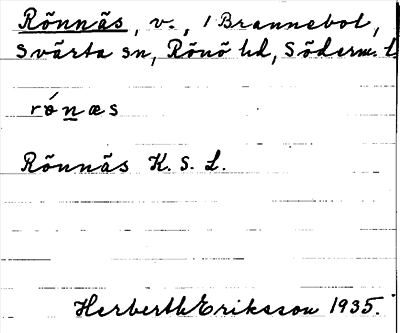 Rönnäs, v., i Brannebol,
Svärta sn, Rönö hd, Söderm. l.
rǿnæs
Rönnäs K. S. L.
Herberth Eriksson 1935.